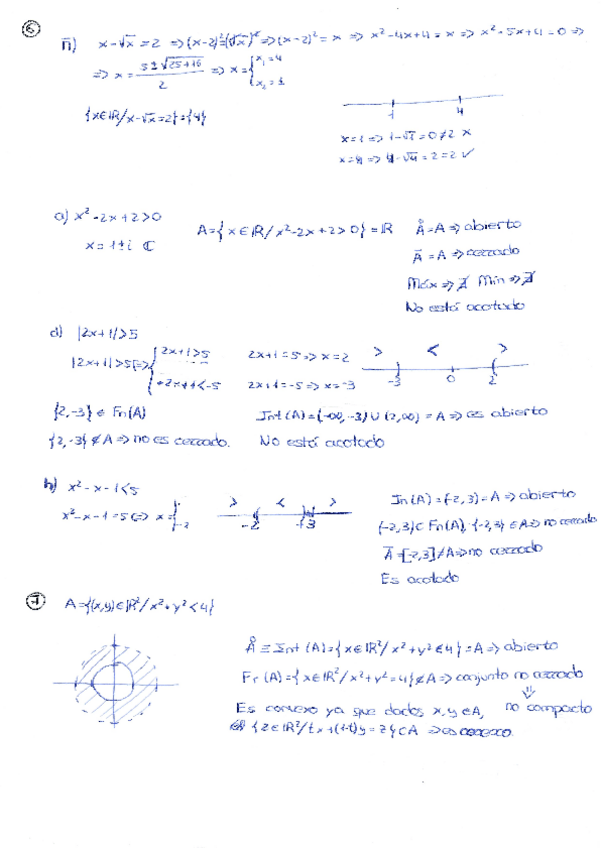 ⑥
ñ) x-√x = 2 ⇒ (x-2)²=(√x)² ⇒ (x-2)² = x ⇒ x²-4x+4 = x ⇒ x²-5x+4=0 ⇒
⇒ x = (5±√(25+16))/2 ⇒ x = { x₁=4 x₂=1
{x∈ℝ/x-√x=2}={4}
1 4
x=1 ⇒ 1-√1=0≠2 ×
x=4 ⇒ 4-√4=2=2 ✓
a) x²-2x+2>0
x=1±i ℂ
A={x∈ℝ/x²-2x+2>0}=ℝ
Å=A ⇒ abierto
Ā=A ⇒ cerrado
Máx ⇒ ∄ Mín ⇒ ∄
No está acotado
d) |2x+1|>5
|2x+1|>5 ⇔ { 2x+1>5 2x+1=5 ⇒ x=2
2x+1<-5 2x+1=-5 ⇒ x=-3
> < >
-3 0 2
{2,-3} ∈ Fr(A) Int(A)=(-∞,-3)∪(2,∞)=A ⇒ es abierto
{2,-3}∉A ⇒ no es cerrado. No está acotado
h) x²-x-1<5
x²-x-1=5 ⇔ x={ -2
> < >
-2 3
Int(A)=(-2,3)=A ⇒ abierto
{-2,3}⊂Fr(A), {-2,3}∉A ⇒ no cerrado
Ā=[-2,3]≠A ⇒ no cerrado
Es acotado
⑦ A={(x,y)∈ℝ²/x²+y²<4}
Å ≡ Int(A)={x∈ℝ²/x²+y²<4}=A ⇒ abierto
Fr(A)={x∈ℝ²/x²+y²=4}∉A ⇒ conjunto no cerrado
⇓
Es convexo ya que dados x,y∈A, no compacto
{z∈ℝ²/tx+(1-t)y=z}⊂A ⇒ es convexo.